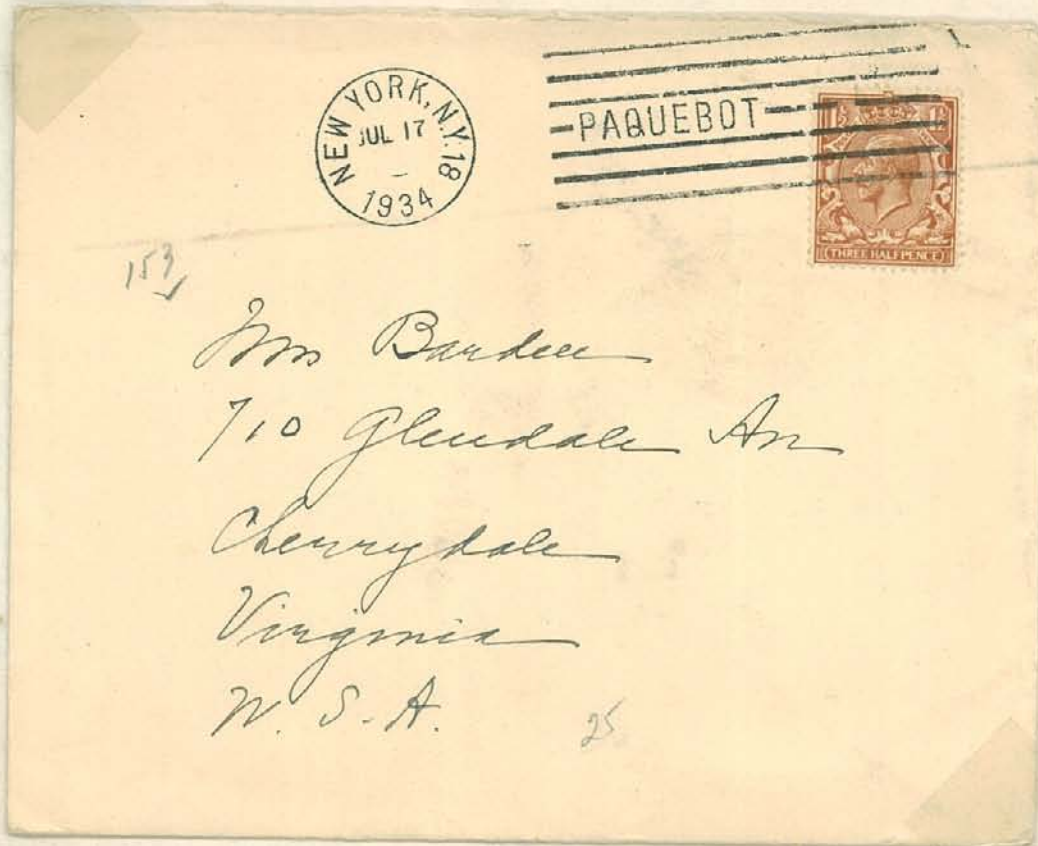 NEW YORK, N.Y. 18
JUL 17
1934
PAQUEBOT
1½ 1½
(THREE HALF PENCE)
159
Mrs Bardee
710 Glendale Av
Cherrydale
Virginia
U. S. A.
25